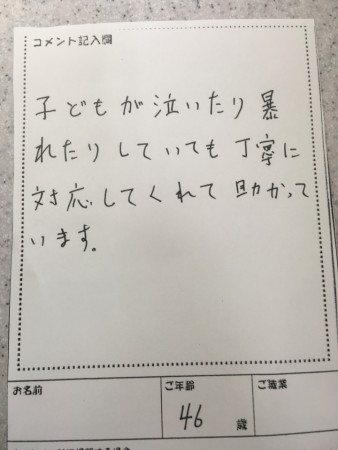 コメント記入欄
子どもが泣いたり暴
れたりしていても丁寧に
対応してくれて助かって
います。
お名前
ご年齢
ご職業
46 歳